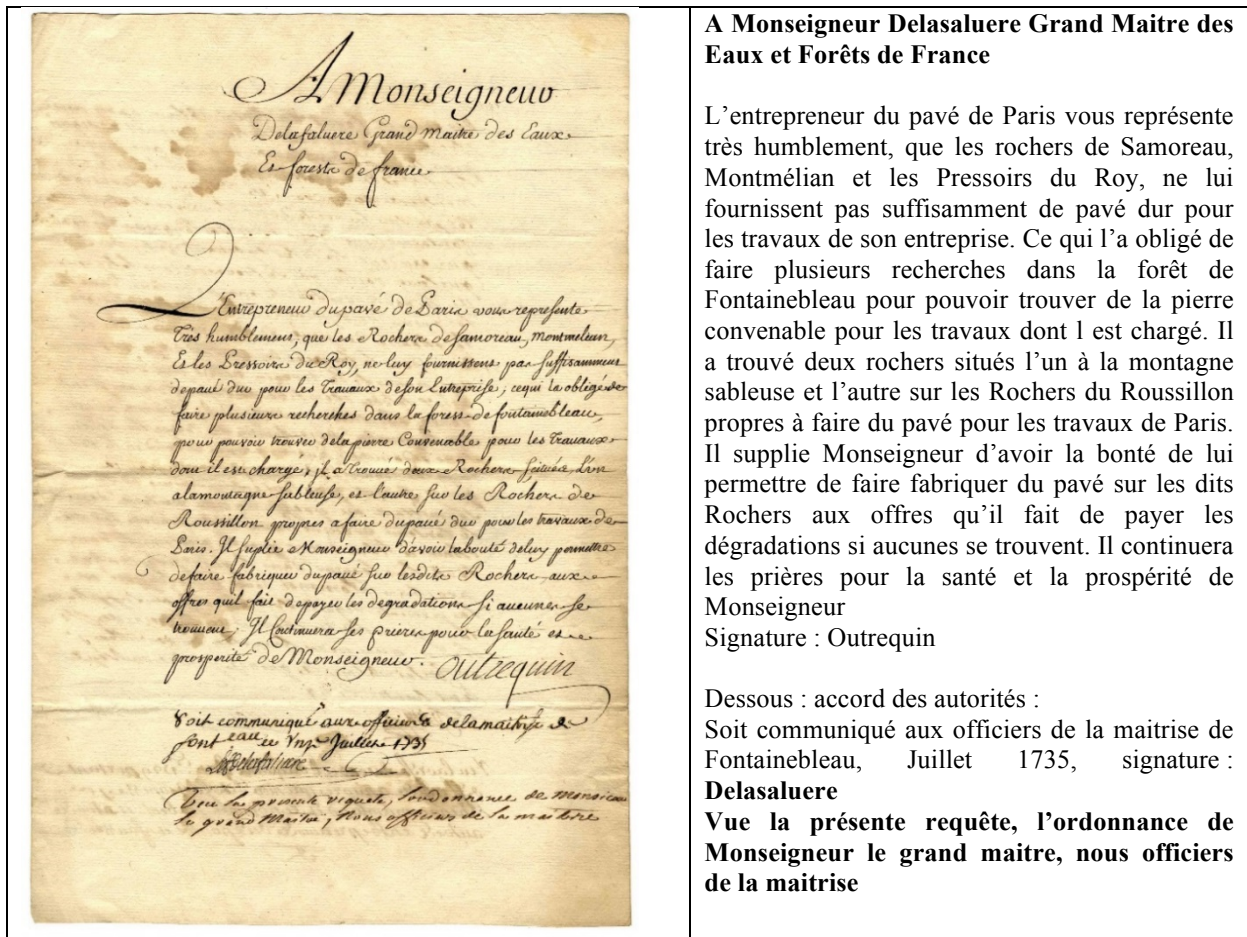 A Monseigneur
Delafaluere Grand Maitre des Eaux
Et forests de france
L'Entrepreneur du pavé de Paris vous represente
Tres humblement, que les Rochers de Samoreau, montmeleun,
Et les Pressoirs du Roy, ne luy fournissent pas suffisamment
de pavé dur pour les Travaux de son Entreprise, ce qui la obligé de
faire plusieurs recherches dans la forest de fontainebleau,
pour pouvoir trouver de la pierre Convenable pour les Travaux
dont il est chargé, il a trouvé deux Rochers scitués, L'un
a la montagne sableuse, et l'autre sur les Rochers de
Roussillon propres a faire du pavé dur pour les travaux de
Paris. Il suplie Monseigneur d'avoir la bonté de luy permettre
de faire fabriquer du pavé sur lesdits Rochers aux
offres quil fait de payer les degradations si aucunes se
trouvent, Il Continuera ses prieres pour la santé et
prosperité de Monseigneur. Outrequin
Soit communiqué aux officiers de la maitrise de
font.eau ce Juillet 1735
Delafaluere
Veu la presente requete, l'ordonnance de Monsieur
le grand Maitre, Nous officiers de la maitrise
A Monseigneur Delasaluere Grand Maitre des
Eaux et Forêts de France
L'entrepreneur du pavé de Paris vous représente
très humblement, que les rochers de Samoreau,
Montmélian et les Pressoirs du Roy, ne lui
fournissent pas suffisamment de pavé dur pour
les travaux de son entreprise. Ce qui l'a obligé de
faire plusieurs recherches dans la forêt de
Fontainebleau pour pouvoir trouver de la pierre
convenable pour les travaux dont l est chargé. Il
a trouvé deux rochers situés l'un à la montagne
sableuse et l'autre sur les Rochers du Roussillon
propres à faire du pavé pour les travaux de Paris.
Il supplie Monseigneur d'avoir la bonté de lui
permettre de faire fabriquer du pavé sur les dits
Rochers aux offres qu'il fait de payer les
dégradations si aucunes se trouvent. Il continuera
les prières pour la santé et la prospérité de
Monseigneur
Signature : Outrequin
Dessous : accord des autorités :
Soit communiqué aux officiers de la maitrise de
Fontainebleau, Juillet 1735, signature :
Delasaluere
Vue la présente requête, l'ordonnance de
Monseigneur le grand maitre, nous officiers
de la maitrise